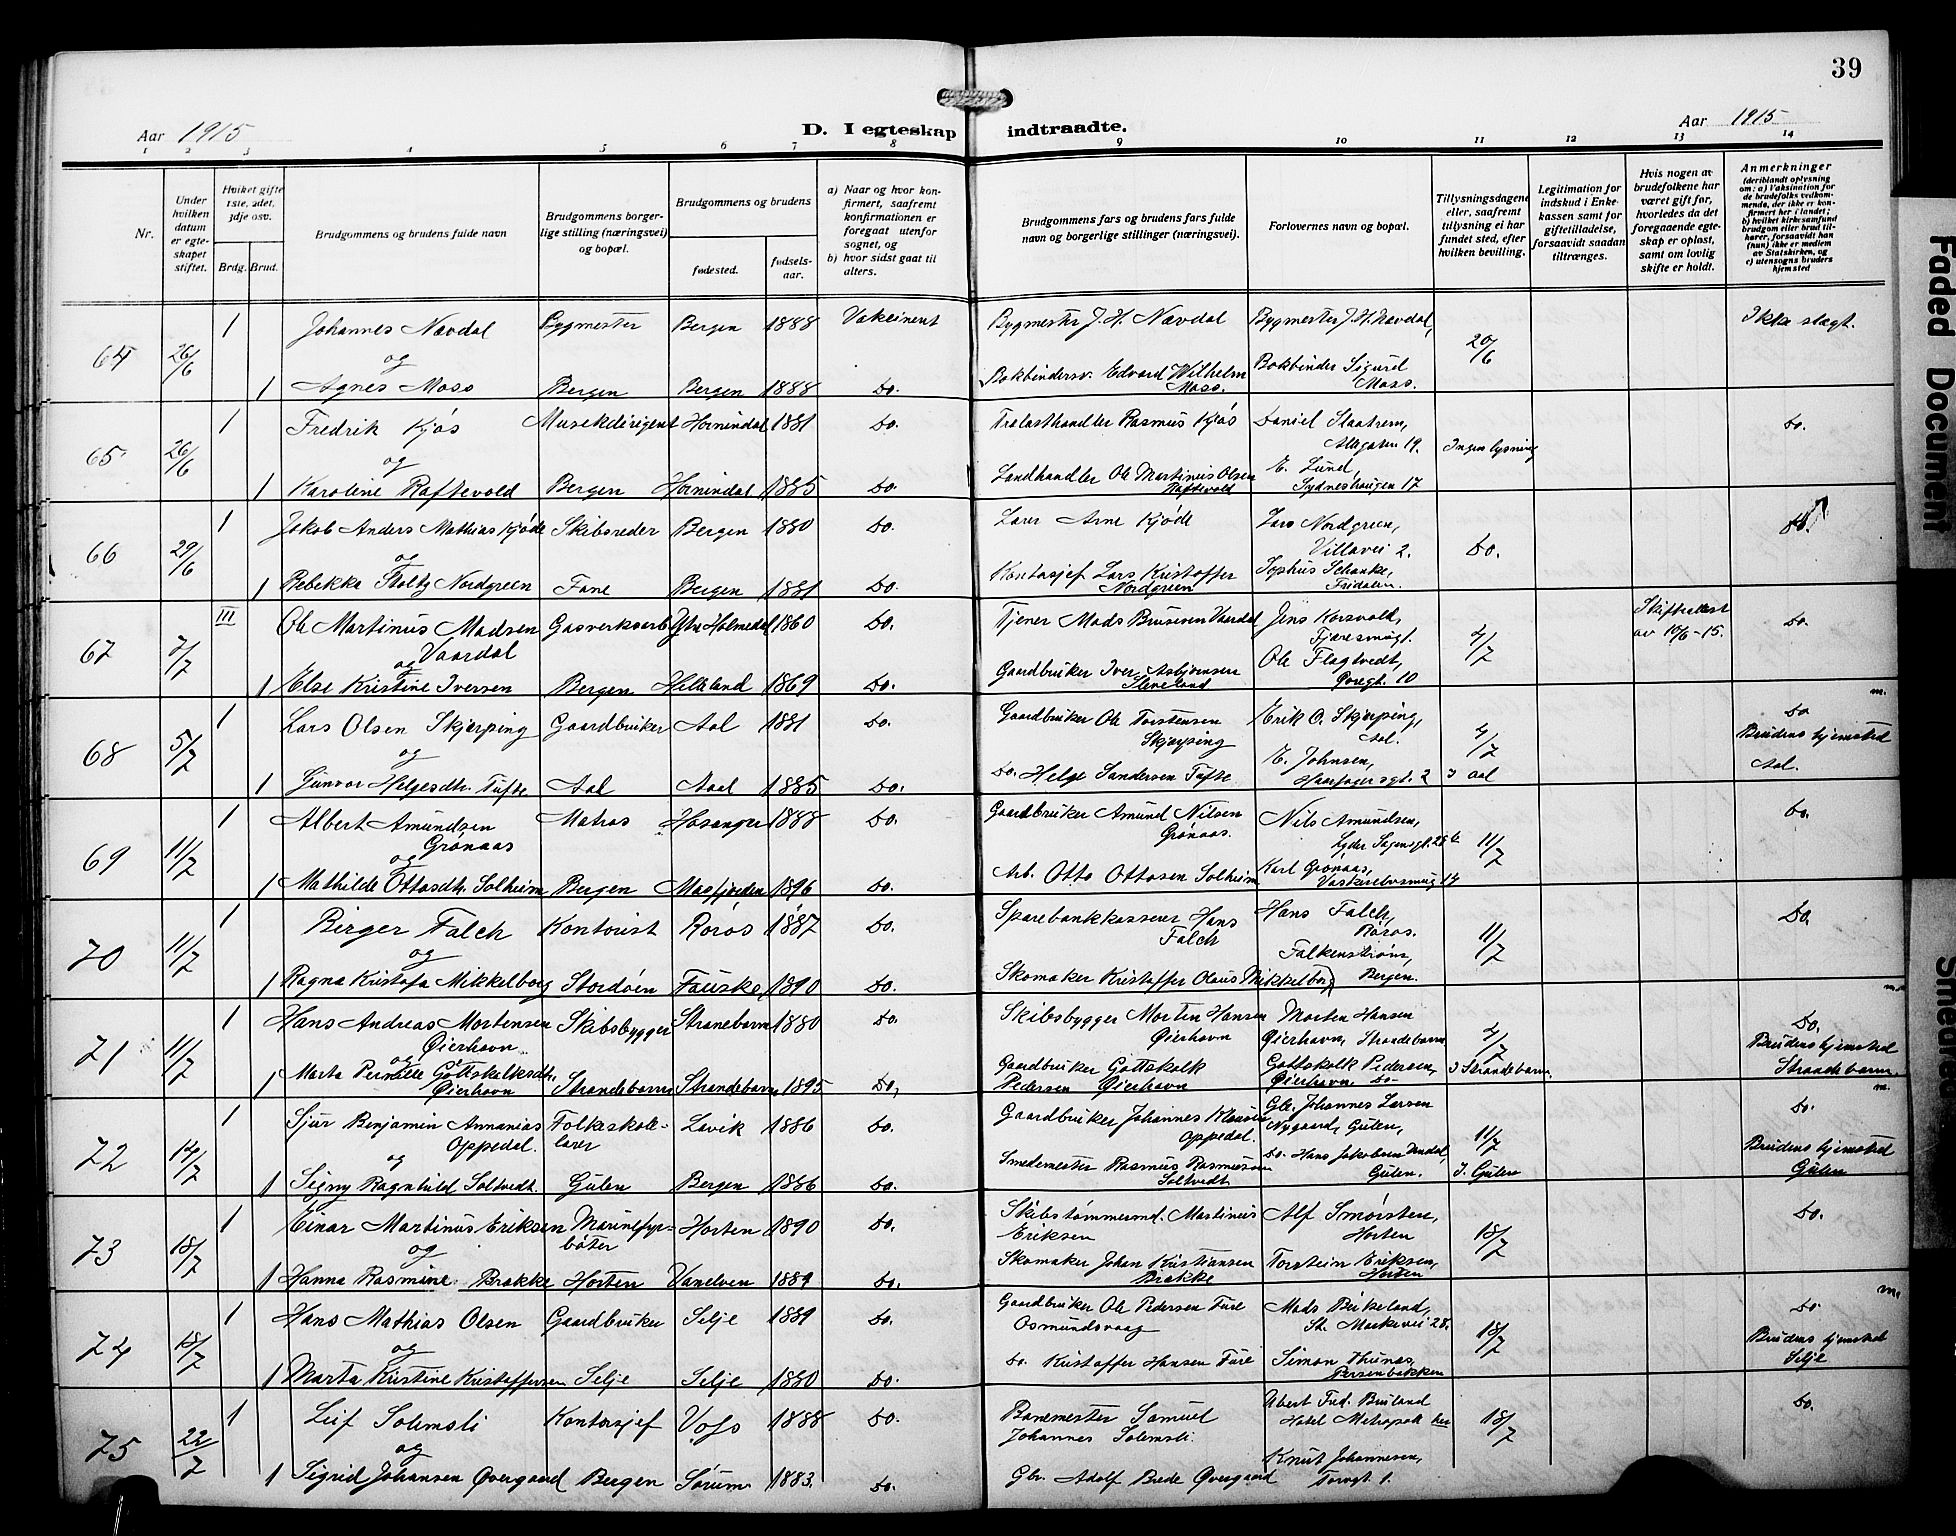 39
Aar 1915
D. I egteskap indtraadte.
Aar 1915
1 2 3 4 5 6 7 8 9 10 11 12 13 14
Nr.
Under hvilken datum er egteskapet stiftet.
Hvilket gifte 1ste, 2det, 3dje osv.
Brdg. Brud.
Brudgommens og brudens fulde navn
Brudgommens borgerlige stilling (næringsvei) og bopæl.
Brudgommens og brudens
fødested.
fødselsaar.
a) Naar og hvor konfirmert, saafremt konfirmationen er foregaat utenfor sognet, og
b) hvor sidst gaat til alters.
Brudgommens fars og brudens fars fulde navn og borgerlige stillinger (næringsvei).
Forlovernes navn og bopæl.
Tillysningsdagene eller, saafremt tillysning ei har fundet sted, efter hvilken bevilling.
Legitimation for indskud i Enkekassen samt for giftetilladelse, forsaavidt saadan tiltrænges.
Hvis nogen av brudefolkene har været gift før, hvorledes da det foregaaende egteskap er opløst, samt om lovlig skifte er holdt.
Anmerkninger
(deriblandt oplysning om: a) Vaksination for de brudefolks vedkommende, der ikke er konfirmert her i landet; b) hvilket kirkesamfund brudgom eller brud tilhører, forsaavidt han (hun) ikke er medlem av Statskirken, og c) utensogns bruders hjemsted
64 26/6 1 Johannes Nævdal Bygmester Bergen 1888 Vaksinert Bygmester J. H. Nævdal Bygmester J. H. Nævdal, 20/6 Ikke slægt.
og
1 Agnes Moss Bergen Bergen 1888 Do. Bokbindersv. Edvard Wilhelm Moss. Bokbinder Sigurd Moss.
65 26/6 1 Fredrik Kjøs Musikdirigent Hornindal 1881 Do. Trælasthandler Rasmus Kjøs Daniel Staatrem, Allegaten 19. Ingen lysning Do.
og
1 Karoline Raftevold Bergen Hornindal 1885 Do. Landhandler Ole Martinius Olsen Raftevold E. Lund, Sydneshaugen 17
66 29/6 1 Jakob Anders Mathias Kjøde Skibsreder Bergen 1880 Lærer Arne Kjøde Lars Nordgreen, Villavei 2. Do. Do.
og
1 Rebekka Stoltz Nordgreen Fane Bergen 1881 Do. Kontorsjef Lars Kristoffer Nordgreen Sophus Schanke, Fridalen.
67 2/7 III Ole Martinus Madsen Vaardal Gasverksarb. Ytre Holmedal 1860 Do. Tjener Mads Brusesen Vaardal Jens Korsvold, Fjæresmugt. 4/7 Skifteattest av 10/6-15. Do.
og
1 Else Kristine Iversen Bergen Helleland 1869 Do. Gaardbruker Iver Asbjørnsen Steneland Ole Flagtvedt, Øvregt. 10
68 5/7 1 Lars Olsen Skjerping Gaardbruker Aal 1881 Do. Gaardbruker Ole Torstensen Skjerping Erik O. Skjerping, Aal. 4/7 m. Do Brudens hjemsted Aal.
og
1 Gunvor Helgesdtr. Tufte Aal Aal 1885 Do. Do. Helge Sandersen Tufte E. Johnsen, Haarfagersgt. 2 I Aal
69 11/7 1 Albert Amundsen Grønaas Matros Hosanger 1888 Do. Gaardbruker Amund Nilsen Grønaas. Nils Amundsen, Lyder Sagensgt. 28 b 11/7 Do.
og
1 Mathilde Ottosdtr. Solheim Bergen Masfjorden 1896 Do. Arb. Otto Ottosen Solheim Karl Grønaas, Vaskerelvsmug 14
70 11/7 1 Birger Falch Kontorist Røros 1887 Do. Sparebankkasserer Hans Falch Hans Falch, Røros. 11/7 Do.
og
1 Ragna Kristofa Mikkelborg Stordøen Fauske 1890 Do. Skomaker Kristoffer Olaus Mikkelborg Falkenstrøm, Bergen.
71 11/7 1 Hans Andreas Mortensen Øierhavn Skibsbygger Strandebarm 1880 Do. Skibsbygger Morten Hansen Øierhavn Morten Hansen Øierhavn, Strandebarm 4/7 m. Do. Brudens hjemsted Strandebarm.
og
1 Marta Pernille Gottskalksdtr. Øierhavn Strandebarm Strandebarm 1895 Do. Gaardbruker Gottskalk Pedersen Øierhavn Gottskalk Pedersen, Øierhavn. Do I Strandebarm.
72 14/7 1 Sjur Benjamin Annanias Oppedal. Folkeskolelærer Lavik 1886 Do. Gaardbruker Johannes Klausen Oppedal. Gbr. Johannes Larsen Nygaard, Gulen, 11/7 m. Do. Brudens hjemsted Gulen
og
1 Signy Ragnhild Soltvedt. Gulen Bergen 1886 Do. Smedemester Rasmus Rasmussen Soltvedt. Do. Hans Jakobsen Gulen. I. Gulen
73 18/7 1 Einar Martinus Eriksen Marinefyrbøter Horten 1890 Do. Skibstømmermd. Martinius Eriksen Alf Smørsten, Horten 18/7 Do.
og
1 Hanna Rasmine Brakke Horten Vanelven 1889 Do. Skomaker Johan Kristiansen Brakke Torstein Eriksen, Horten
74 18/7 1 Hans Mathias Olsen Gaardbruker Selje 1889 Do. Gaardbruker Ole Pedersen Fure Osmundsvaag Mads Birkeland, St. Markevei 28. 18/7 m. Do. Brudens hjemsted Selje
og
1 Marta Kristine Kristoffersen Selje Selje 1880 Do. Do. Kristoffer Hansen Fure Simon Thunas, Persenbakken
75 22/7 1 Leif Solemsli Kontorsjef Vofs 1888 Do. Banemester Samuel Johannes Solemsli. Albert Fred. Hotel Metropole her 18/7 Do.
og
1 Sigrid Johansen Øvergaard Bergen Sørum 1883. Do. Gbr. Adolf Brede Øvergaard Knut Johannesen, Torvgt. 1.
Faded Document
Smeared